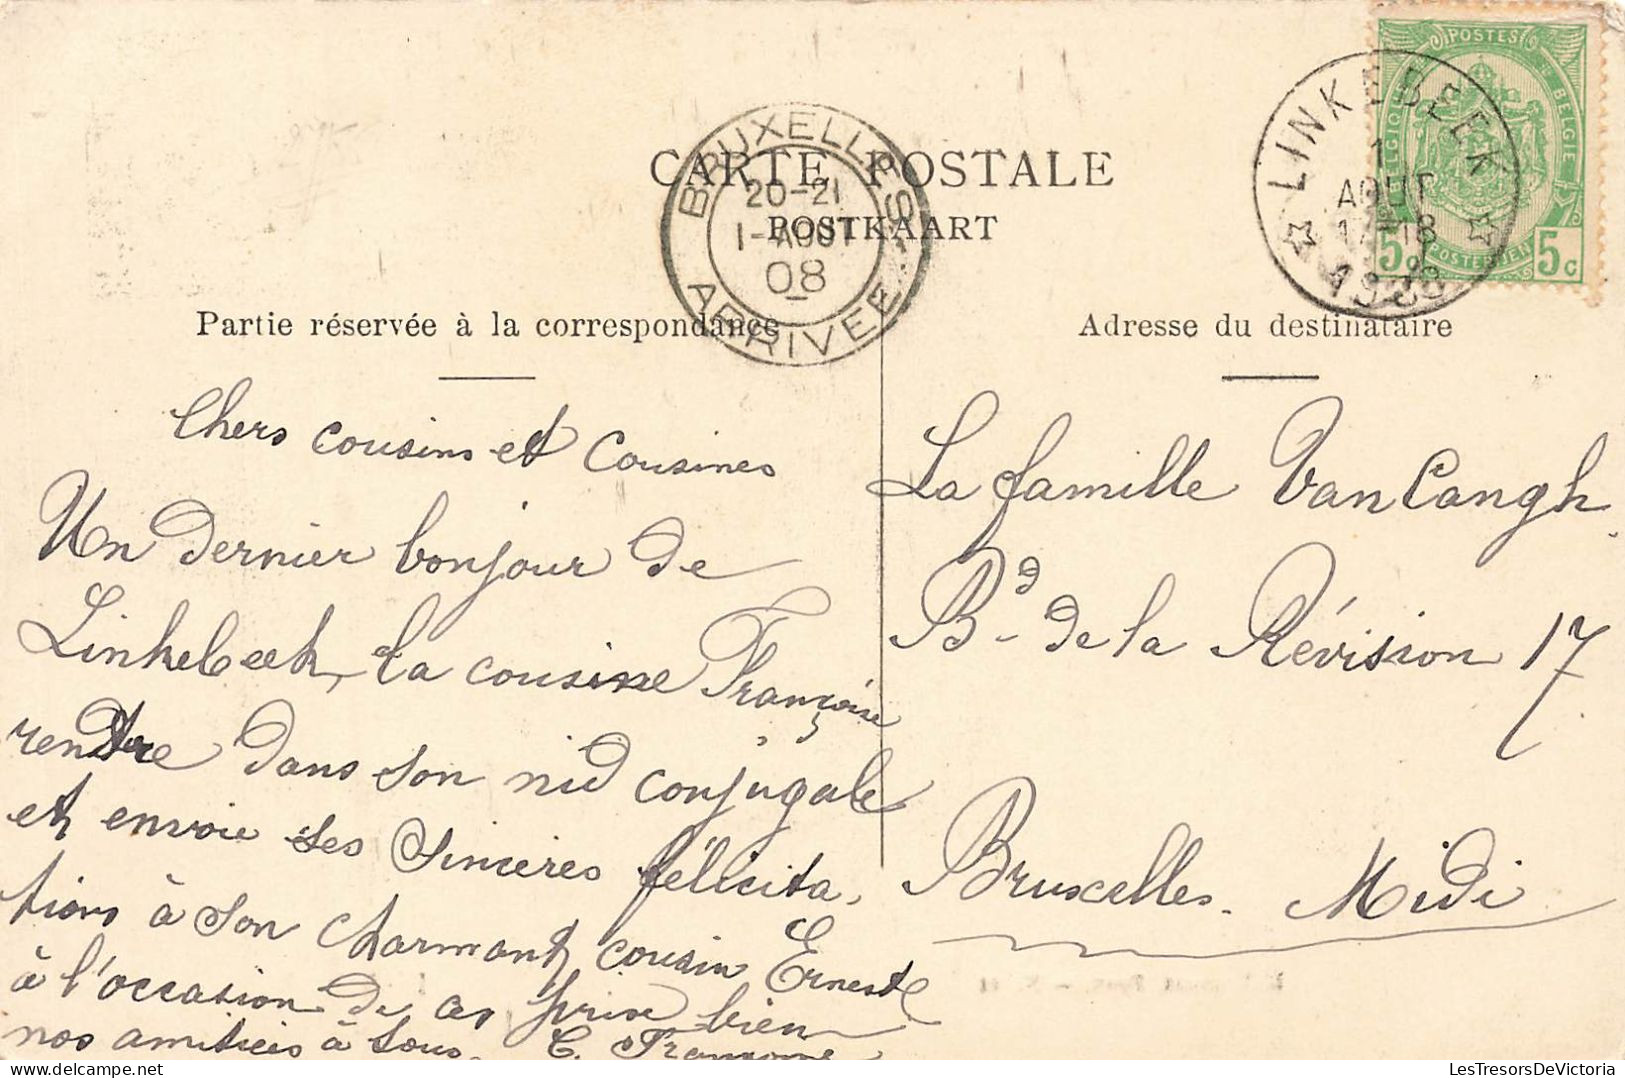 CARTE POSTALE
POSTKAART
BRUXELLES
20-21
1-AOUT
08
ARRIVEE
LINKEBEEK
1
AOUT
17-18
1908
POSTES
BELGIQUE
BELGIE
POSTERIJEN
5c 5c
Partie réservée à la correspondance
Chers cousins et Cousines
Un dernier bonjour de
Linkebeek, la cousine Françoise
rentre dans son nid conjugale
et envoie ses sincères félicita,
tions à son charmant cousin Ernest
à l'occasion de ces prix bien
nos amitiés à tous.
Adresse du destinataire
La famille Van Cangh
Bd de la Révision 17
Bruxelles. Midi
LesTresorsDeVictoria